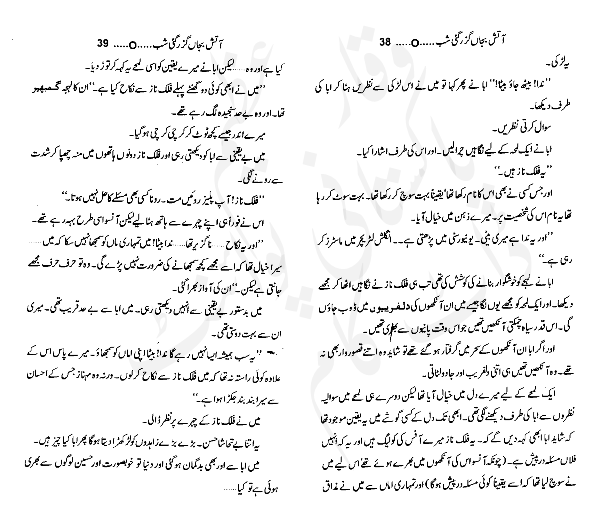 آتش بجاں گزر گئی شب ......O...... 38
یہ لڑکی۔
”ندا! بیٹھ جاؤ بیٹا!“ ابا نے پھر کہا تو میں نے اس لڑکی سے نظریں ہٹا کر ابا کی
طرف دیکھا۔
سوال کرتی نظریں۔
ابا نے ایک لمحہ کے لیے نگاہیں چرا لیں۔ اور اس کی طرف اشارا کیا۔
”یہ فلک ناز ہیں۔“
اور جس کسی نے بھی اس کا نام رکھا تھا یقیناً بہت سوچ کر رکھا تھا۔ بہت سوٹ کر رہا
تھا یہ نام اس کی شخصیت پر۔ میرے ذہن میں خیال آیا۔
”اور یہ ندا ہے میری بیٹی۔ یونیورسٹی میں پڑھتی ہے۔۔ انگلش لٹریچر میں ماسٹرز کر
رہی ہے۔“
ابا نے لہجے کو خوشگوار بنانے کی کوشش کی تھی تب ہی فلک ناز نے نگاہیں اٹھا کر مجھے
دیکھا۔ اور ایک لمحہ کو مجھے یوں لگا جیسے میں ان آنکھوں کی دلفریبیوں میں ڈوب جاؤں
گی۔ اس قدر سیاہ چمکتی آنکھیں تھیں جو اس وقت پانیوں سے بھری تھیں۔
اور اگر ابا ان آنکھوں کے سحر میں گرفتار ہو گئے تھے تو شاید وہ اتنے قصوروار بھی نہ
تھے۔ وہ آنکھیں تھیں ہی اتنی دلفریب اور جادو لٹاتی۔
ایک لمحے کے لیے میرے دل میں خیال آیا تھا لیکن دوسرے ہی لمحے میں سوالیہ
نظروں سے ابا کی طرف دیکھنے لگی تھی۔ ابھی تک دل کے کسی گوشے میں یہ یقین موجود تھا
کہ شاید ابا ابھی کہہ دیں گے کہ۔ یہ فلک ناز میرے آفس کی کولیگ ہیں اور یہ کہ انہیں
فلاں مسئلہ درپیش ہے۔ (چونکہ آنسو اس کی آنکھوں میں بھرے ہوئے تھے اس لیے میں
نے سوچ لیا تھا کہ اسے یقیناً کوئی مسئلہ درپیش ہو گا) اور تمہاری اماں سے میں نے مذاق
آتش بجاں گزر گئی شب ......O...... 39
کیا ہے اور وہ ...... لیکن ابا نے میرے یقین کو اسی لمحے یہ کہہ کر توڑ دیا۔
”میں نے ابھی کوئی دو گھنٹے پہلے فلک ناز سے نکاح کیا ہے۔“ ان کا لہجہ گمبھیر
تھا۔ اور وہ بے حد سنجیدہ لگ رہے تھے۔
میرے اندر جیسے کچھ ٹوٹ کر کرچی کرچی ہو گیا۔
میں بے یقینی سے ابا کو دیکھتی رہی اور فلک ناز دونوں ہاتھوں میں منہ چھپا کر شدت
سے رونے لگی۔
”فلک ناز! آپ پلیز روئیں مت۔ رونا کسی بھی مسئلے کا حل نہیں ہوتا۔“
اس نے فوراً ہی اپنے چہرے سے ہاتھ ہٹا لیے لیکن آنسو اسی طرح بہہ رہے تھے۔
”اور یہ نکاح ...... ناگزیر تھا ...... ندا بیٹا میں تمہاری ماں کو سمجھا نہیں سکا کہ میں ......
میرا خیال تھا کہ اسے مجھے کچھ سمجھانے کی ضرورت نہیں پڑے گی۔ وہ تو حرف حرف مجھے
جانتی ہے لیکن۔“ ان کی آواز بھرا گئی۔
میں بدستور بے یقینی سے انہیں دیکھتی رہی۔ میں ابا سے بے حد قریب تھی۔ میری
ان سے بہت دوستی تھی۔
”یہ سب ہمیشہ ایسا نہیں رہے گا ندا! بیٹا اپنی اماں کو سمجھاؤ۔ میرے پاس اس کے
علاوہ کوئی راستہ نہ تھا کہ میں فلک ناز سے نکاح کر لوں۔ ورنہ وہ مہناز جس کے احسان
سے میرا بند بند جکڑا ہوا ہے۔“
میں نے فلک ناز کے چہرے پر نظر ڈالی۔
یہ اتنا بے تحاشا حسن۔ بڑے بڑے زاہدوں کو لڑکھڑا دیتا ہو گا پھر ابا کیا چیز ہیں۔
میں ابا سے اور بھی بدگمان ہو گئی اور دنیا تو خوبصورت اور حسین لوگوں سے بھری
ہوئی ہے تو کیا ......